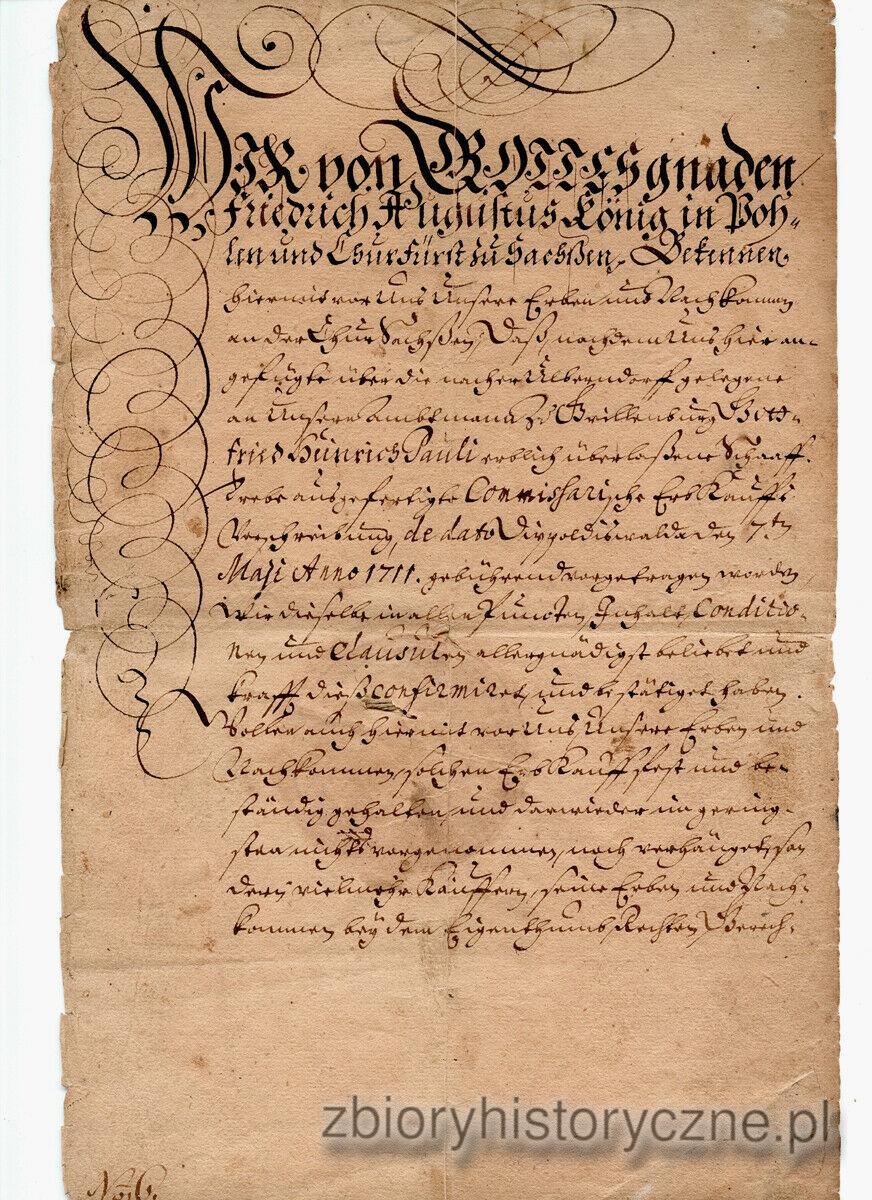 WIR von GOTTES gnaden
Friedrich Augustus König in Poh-
len und ChurFürst zu Sachßen, Bekennen
hiermit vor Uns Unsere Erben und Nachkommen
an der Chur Sachßen, Daß, nachdem Uns hier an-
gefügte über die nacher Ulberndorff gelegene
an Unsern Ambtmann zu Grillenburg Gott-
fried Heinrich Pauli erblich überlaßene Schaaff-
Trebe ausgefertigte Commissarische Erb Kauffs
Verschreibung, de dato Dippoldiswalda den 7.ten
Maji Anno 1711. gebührend vorgetragen worden,
Wir dieselbe in allen Puncten, Inhalt, Conditio-
nen und Clausuln allergnädigst beliebet und
krafft dieß confirmiret, und bestätiget haben.
Wollen auch hiermit vor Uns Unsere Erben und
Nachkommen, solchen Erb Kauff fest und be-
ständig gehalten, und darwieder im gering-
sten nichts vorgenommen, noch verhänget, son
dern vielmehr Käuffern, seine Erben und Nach-
kommen bey dem Eigenthumb, Rechten, Gerech-
zbioryhistoryczne.pl